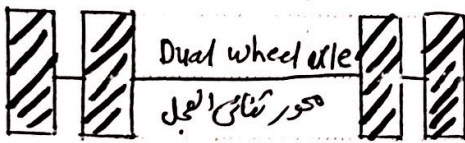 Dual wheel axle
محور ثنائي العجل